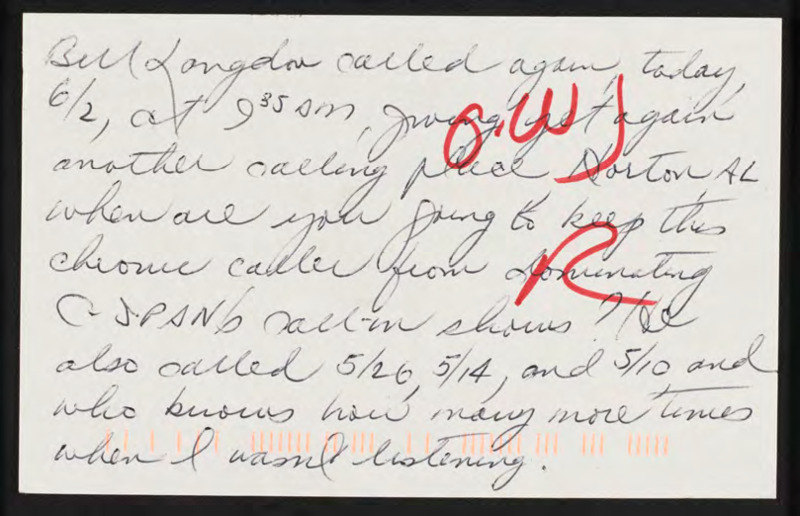 Bill Longdon called again, today,
6/2, at 9:35 AM, giving yet again
another calling place Horton, AL
when are you going to keep this
chronic caller from dominating
C-SPAN's call-in shows? He
also called 5/26, 5/14, and 5/10 and
who knows how many more times
when I wasn't listening.
O.WJ
R